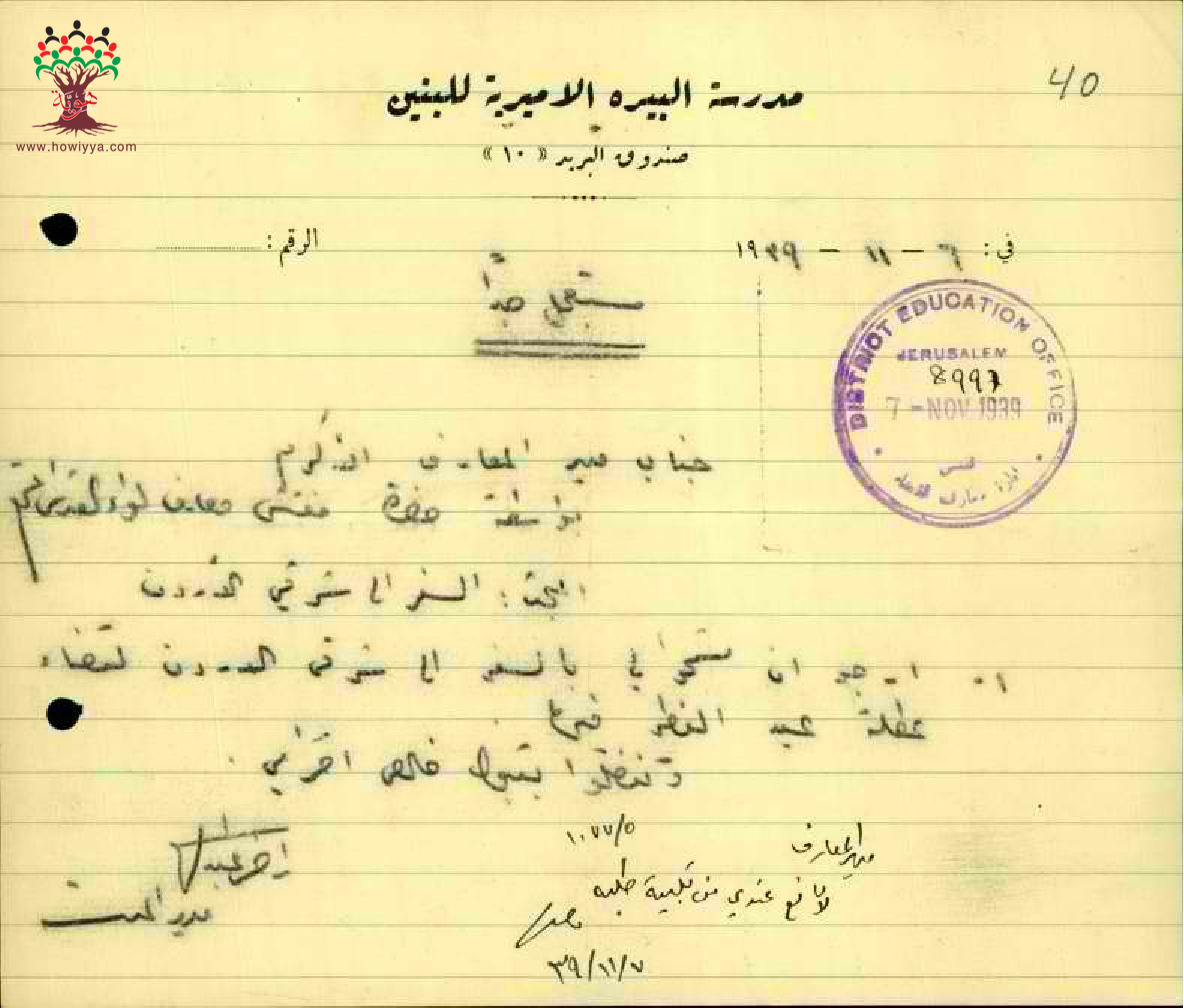 هوية
www.howiyya.com
40
مدرسة البيره الاميرية للبنين
صندوق البريد « ١٠ »
في : ٦ - ١١ - ١٩٣٩
الرقم :
مستعجل جداً
DISTRICT EDUCATION OFFICE
JERUSALEM
8997
7 - NOV 1939
جناب مدير المعارف الأكرم
بواسطة حضرة مفتش معارف لواء القدس
البحث : السفر الى شرقي الأردن
١- ارجو ان تسمحوا لي بالسفر الى شرقي الاردن لقضاء
عطلة عيد الفطر فيها .
وتفضلوا بقبول فائق احترامي .
مدير المدرسة
١٠٧٧/٥
مدير المعارف
لا مانع عندي من تلبية طلبه
٣٩/١١/٧